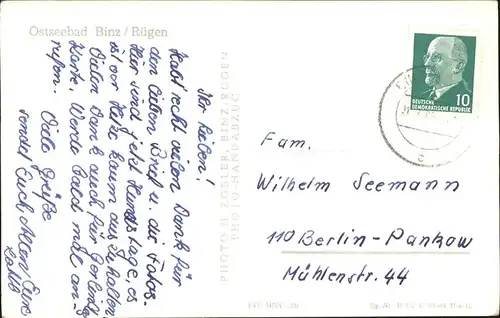 Ostseebad Binz / Rügen
Ihr Lieben!
Habt recht vielen Dank für
den lieben Brief u. die Fotos.
Hier sind jetzt Hundstage, es
ist vor Hitze kaum auszuhalten.
Vielen Dank auch für
Karte. Werde bald mal an-
rufen. Viele Grüße
sendet Euch Allen Eure
PHOTO H. ZOBLER · BINZ, RÜGEN
PHOTO-HANDABZUG
10
DEUTSCHE
DEMOKRATISCHE REPUBLIK
Fam.
Wilhelm Seemann
110 Berlin-Pankow
Mühlenstr. 44